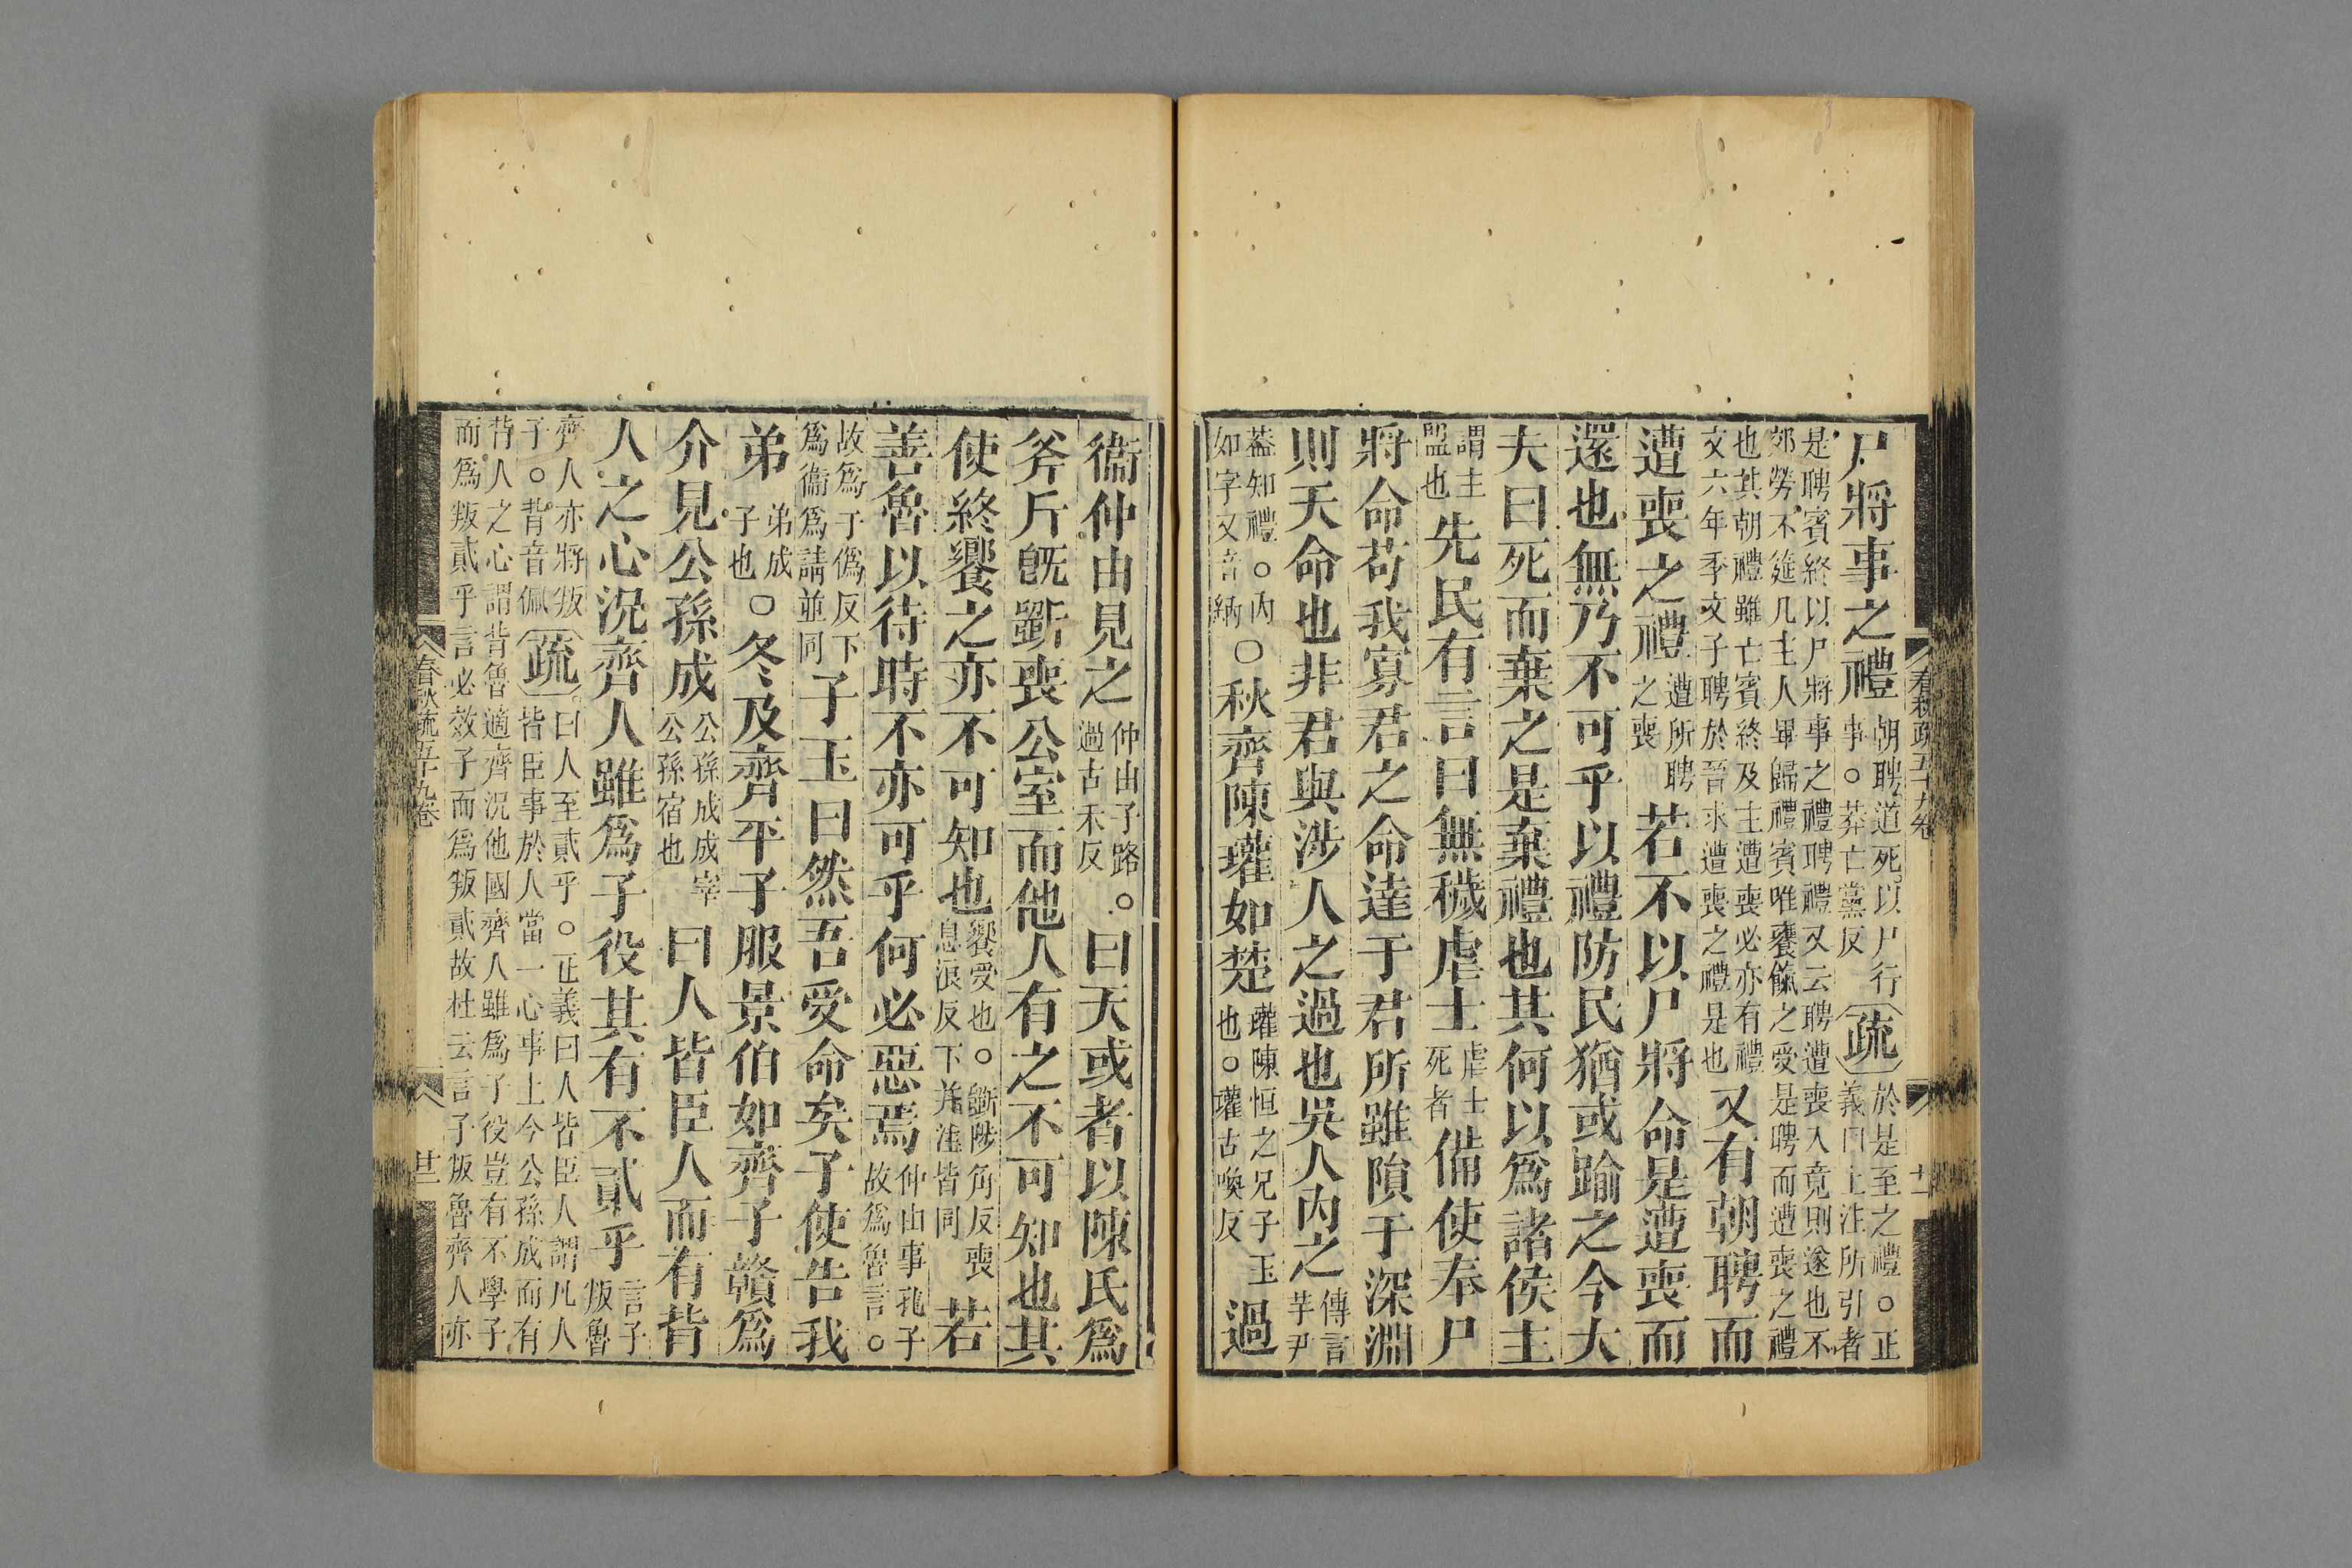 尸將事之禮朝聘道死以尸行事。莽亡黨反疏於是至之禮。正義曰上注所引者
是聘賓終以尸將事之禮聘禮又云聘遭喪入竟則遂也不
郊勞不筵几主人畢歸禮賓唯饔餼之受是聘而遭喪之禮
也其朝禮雖亡賓終及主遭喪必亦有禮文六年季文子聘於晉求遭喪之禮是也又有朝聘而
遭喪之禮遭所聘之喪若不以尸將命是遭喪而
還也無乃不可乎以禮防民猶或踰之今大
夫曰死而棄之是棄禮也其何以爲諸侯主
謂主盟也先民有言曰無穢虐士虐士死者備使奉尸
將命苟我寡君之命達于君所雖隕于深淵
則天命也非君與涉人之過也吳人內之傳言芋尹
葢知禮。內如字又音納○秋齊陳瓘如楚瓘陳恒之兄子玉也。瓘古喚反過
春秋疏五十九卷
廿一
衞仲由見之仲由子路。過古禾反曰天或者以陳氏爲
斧斤旣斵喪公室而他人有之不可知也其
使終饗之亦不可知也饗受也。斵陟角反喪息浪反下并注皆同若
善魯以待時不亦可乎何必惡焉仲由事孔子故爲魯言。
故爲于僞反下爲衞爲請並同子玉曰然吾受命矣子使告我
弟弟成子也○冬及齊平子服景伯如齊子贛爲
介見公孫成公孫成成宰公孫宿也曰人皆臣人而有背
人之心況齊人雖爲子役其有不貳乎言子叛魯
齊人亦將叛子。背音佩疏曰人至貳乎。正義曰人皆臣人謂凡人皆臣事於人當一心事上今公孫成而有
背人之心謂背魯適齊況他國齊人雖爲子役豈有不學子
而爲叛貳乎言必效子而爲叛貳故杜云言子叛魯齊人亦
春秋疏五十九卷
廿二